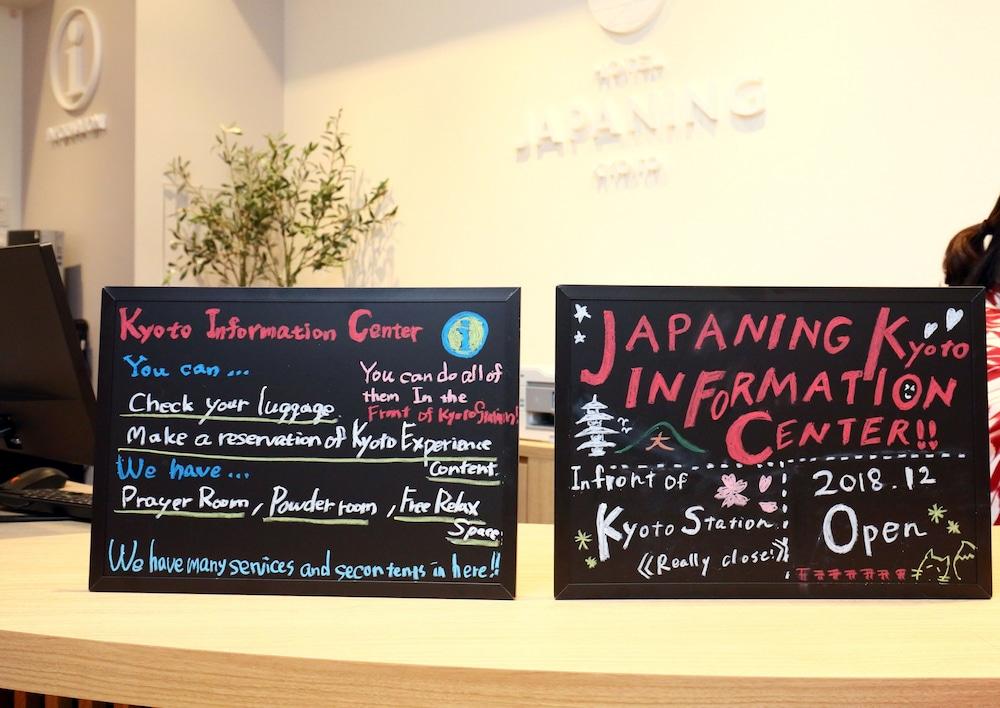 INFORMATION
HOTEL
JAPANING
Kyoto Information Center
i
You can ...
You can do all of
them In the
Front of Kyoto Station!
Check your luggage
Make a reservation of Kyoto Experience
Content.
We have ...
Prayer Room, Powder room, Free Relax
Space.
We have many services and secontents in here!!
JAPANING Kyoto
INFORMATION
CENTER!!
大
In front of
Kyoto Station
《Really close!》
2018.12
Open